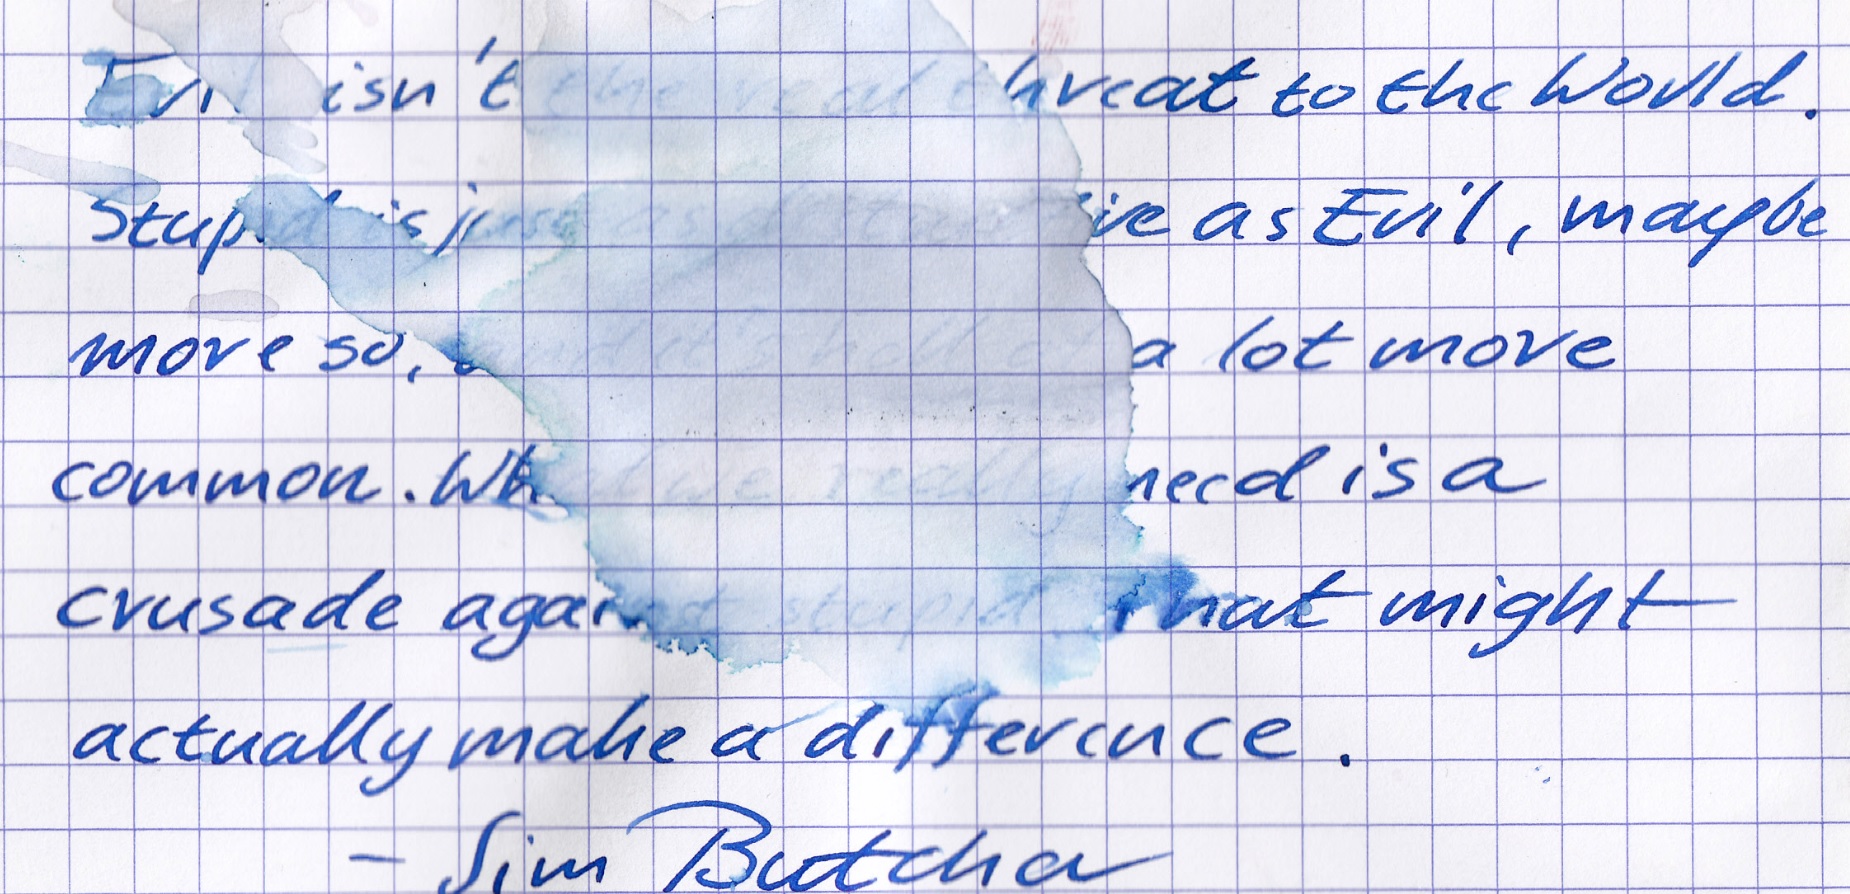 Evil isn't the real threat to the World.
Stupid is just as destructive as Evil, maybe
more so, and it's hell of a lot more
common. What we really need is a
crusade against stupid that might
actually make a difference.
- Jim Butcher